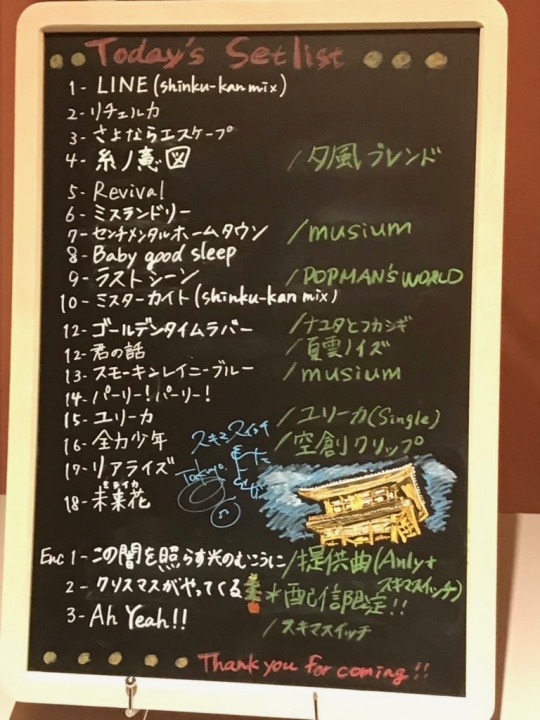 Today's Setlist
1- LINE (shinku-kan mix)
2- リチェルカ
3- さよならエスケープ
4- 糸ノ意図 /夕風ブレンド
5- Revival
6- ミスランドリー
7- センチメンタルホームタウン /musium
8- Baby good sleep
9- ラストシーン /POPMAN'S WORLD
10- ミスターカイト (shinku-kan mix)
12- ゴールデンタイムラバー /ナユタとフカシギ
12- 君の話 /夏雲ノイズ
13- スモーキンレイニーブルー /musium
14- パーリー!パーリー!
15- ユリーカ /ユリーカ(Single)
16- 全力少年 /空創クリップ
スキマスイッチ
17- リアライズ
Takuya
18- 未来花
ミライカ
Enc 1- この闇を照らす光のむこうに /提供曲(Anly+
スキマスイッチ)
2- クリスマスがやってくる *配信限定!!
3- Ah Yeah!! /スキマスイッチ
Thank you for coming!!